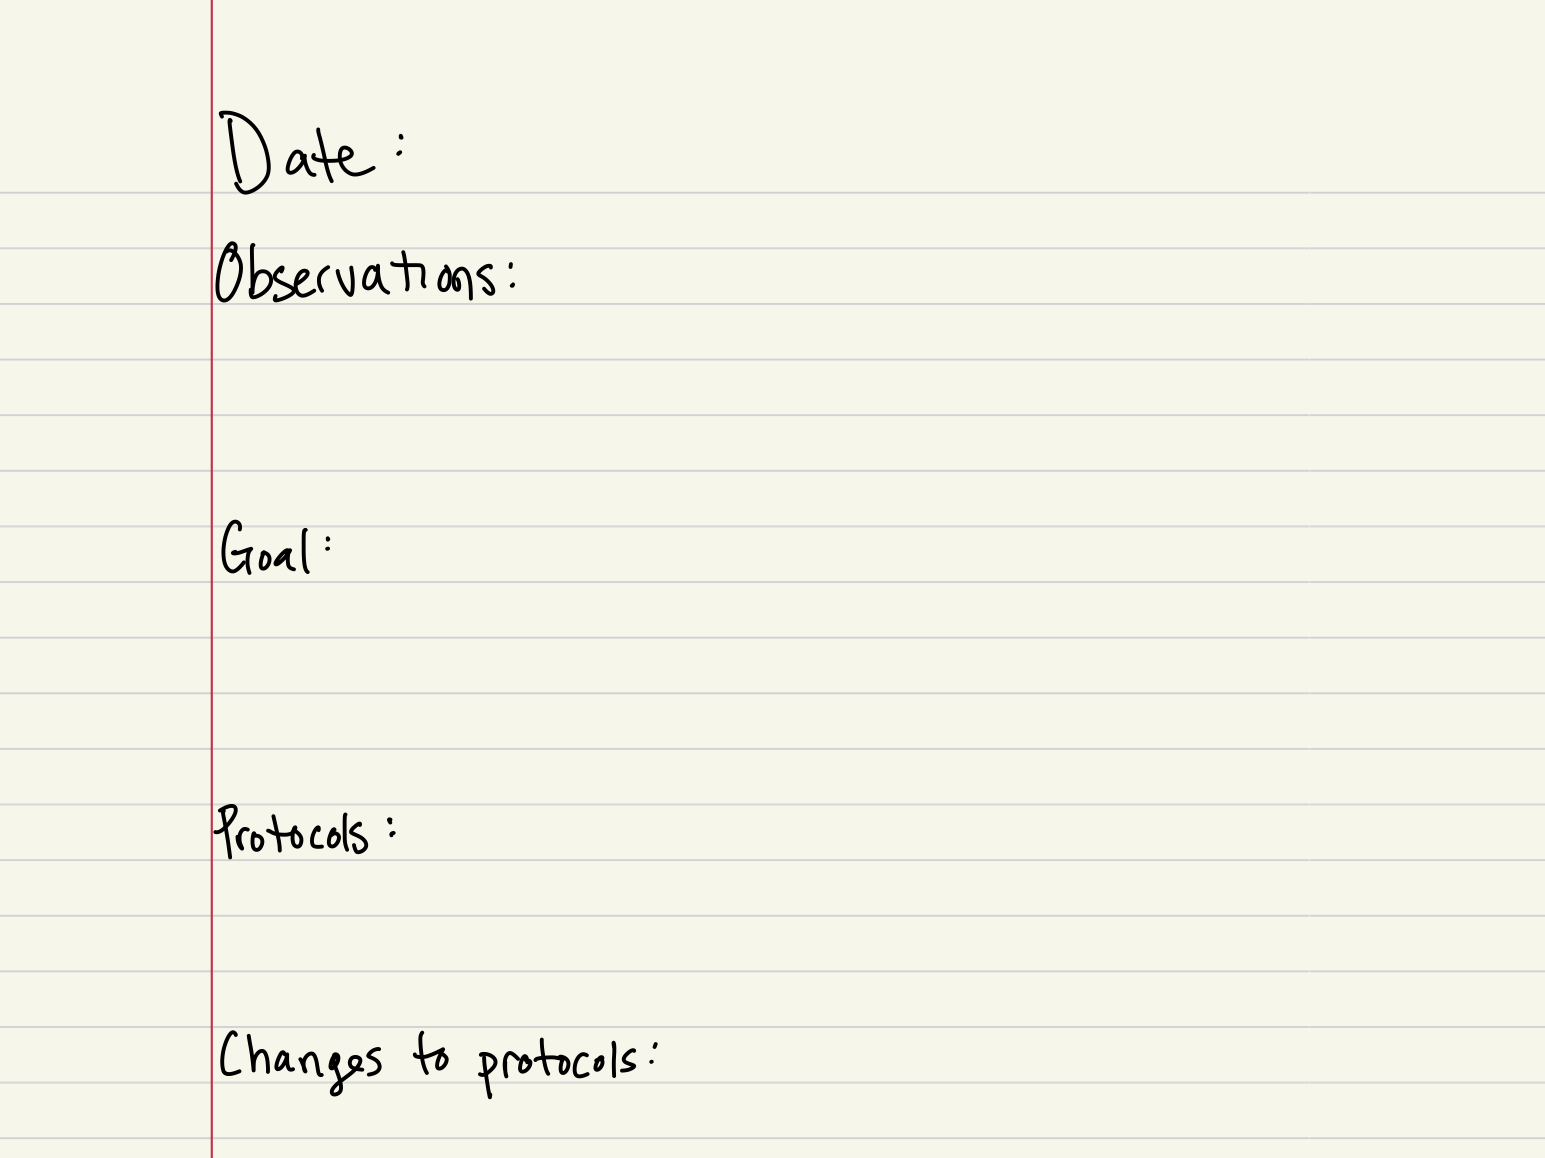 Date:
Observations:
Goal:
Protocols:
Changes to protocols: